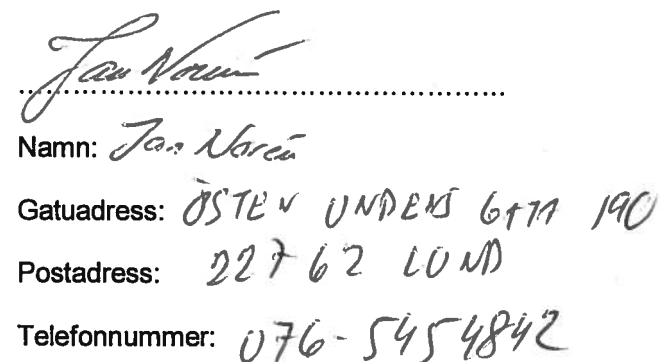 Jan Norén
Namn: Jan Norén
Gatuadress: ÖSTEN UNDENS GATA 190
Postadress: 22762 LUND
Telefonnummer: 076-5454842